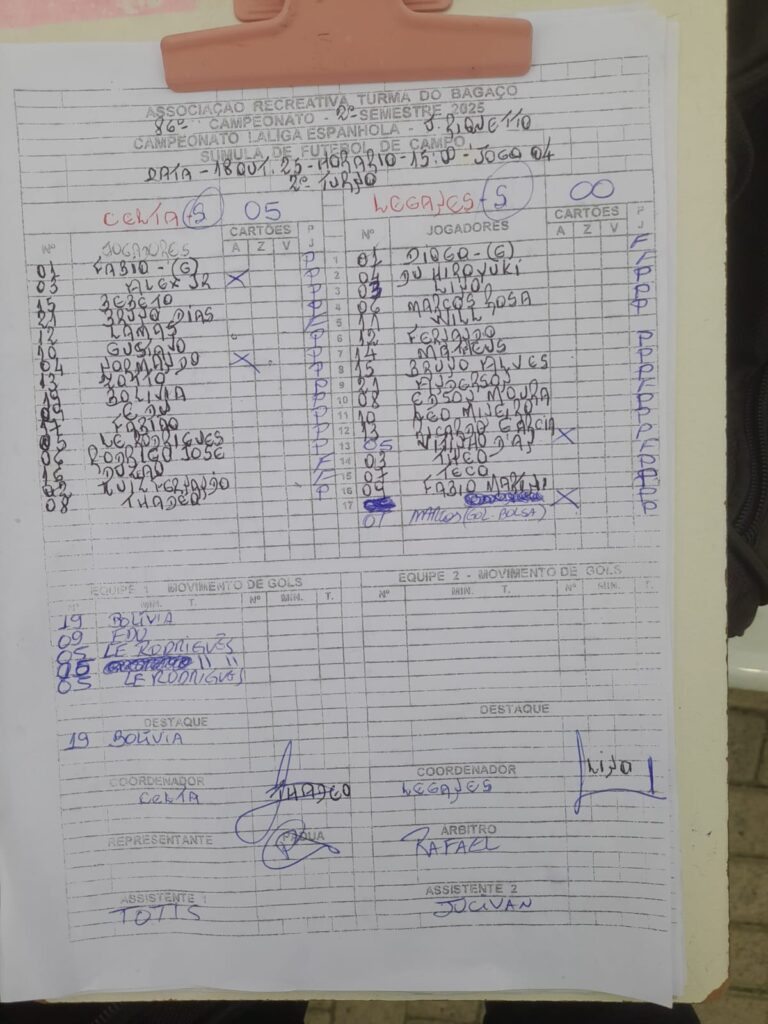 ASSOCIAÇÃO RECREATIVA TURMA DO BAGAÇO
86º CAMPEONATO - 2º SEMESTRE 2025
CAMPEONATO LALIGA ESPANHOLA - J. RIQUETTO
SUMULA DE FUTEBOL DE CAMPO
DATA - 18 OUT. 25 - HORARIO - 15:00 - JOGO 04
2º TURNO
CELTA - S 05
LEGANES - S 00
CARTÕES
Nº JOGADORES A Z V P J
01 FABIO - (G)
03 ALEX JR X
15 BEBETO
21 BRUNO DIAS
12 LAMAS
10 GUSTAVO
04 NORMANDO X
13
19 BOLIVIA
09 EDU
17 FABIAO
05 LE RODRIGUES
06 RODRIGO JOSE
16
02 LUIZ FERNANDO
08 THADEO
CARTÕES
Nº JOGADORES A Z V P J
1 01 DIOGO - (G) F
2 04 DU HIROYUKI
3 03
4 06 MARCOS ROSA P
5 11 WILL
6 12 FERNANDO P
7 14 MATHEUS P
8 15 BRUNO ALVES P
9 21 ANDERSON
10 08 EDSON MOURA
11 10 LEO MINEIRO
12 13 RICARDO GARCIA
13 05 X
14 02 THEO
15 07 TECO
16 09 FABIO MARINI
17 X
01 MARCOS (GOL BOLSA)
EQUIPE 1 MOVIMENTO DE GOLS
Nº MIN. T. Nº MIN. T.
19 BOLÍVIA
09 EDU
05 LE RODRIGUES
05 " "
05 LE RODRIGUES
EQUIPE 2 - MOVIMENTO DE GOLS
Nº MIN. T. Nº MIN. T.
DESTAQUE
19 BOLÍVIA
DESTAQUE
COORDENADOR
CELTA THADEO
COORDENADOR
LEGANES
REPRESENTANTE
PADUA
ARBITRO
RAFAEL
ASSISTENTE 1
TOTTS
ASSISTENTE 2
JUCIVAN